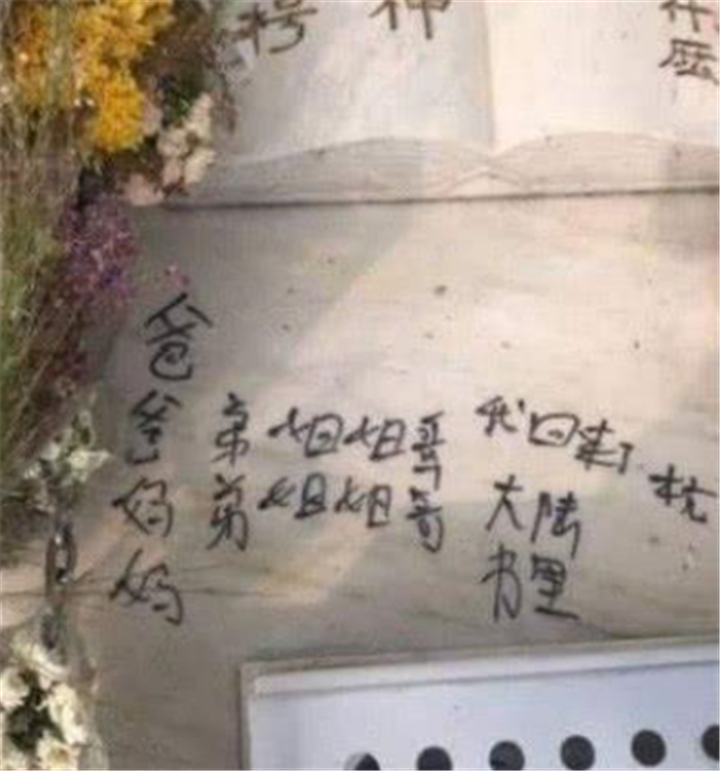 神
爸爸妈妈
弟弟
姐姐
姐姐
哥哥
我回来了
大陆
里
杭